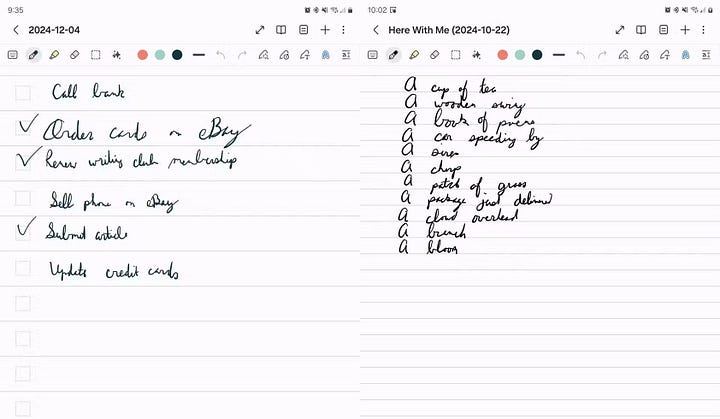 9:35
2024-12-04
Call bank
Order cards on eBay
Renew writing club membership
Sell phone on eBay
Submit article
Update credit cards
10:02
Here With Me (2024-10-22)
A cup of tea
A wooden swing
A book of poems
A car speeding by
A siren
A chirp
A patch of grass
A package just delivered
A cloud overhead
A branch
A bloom